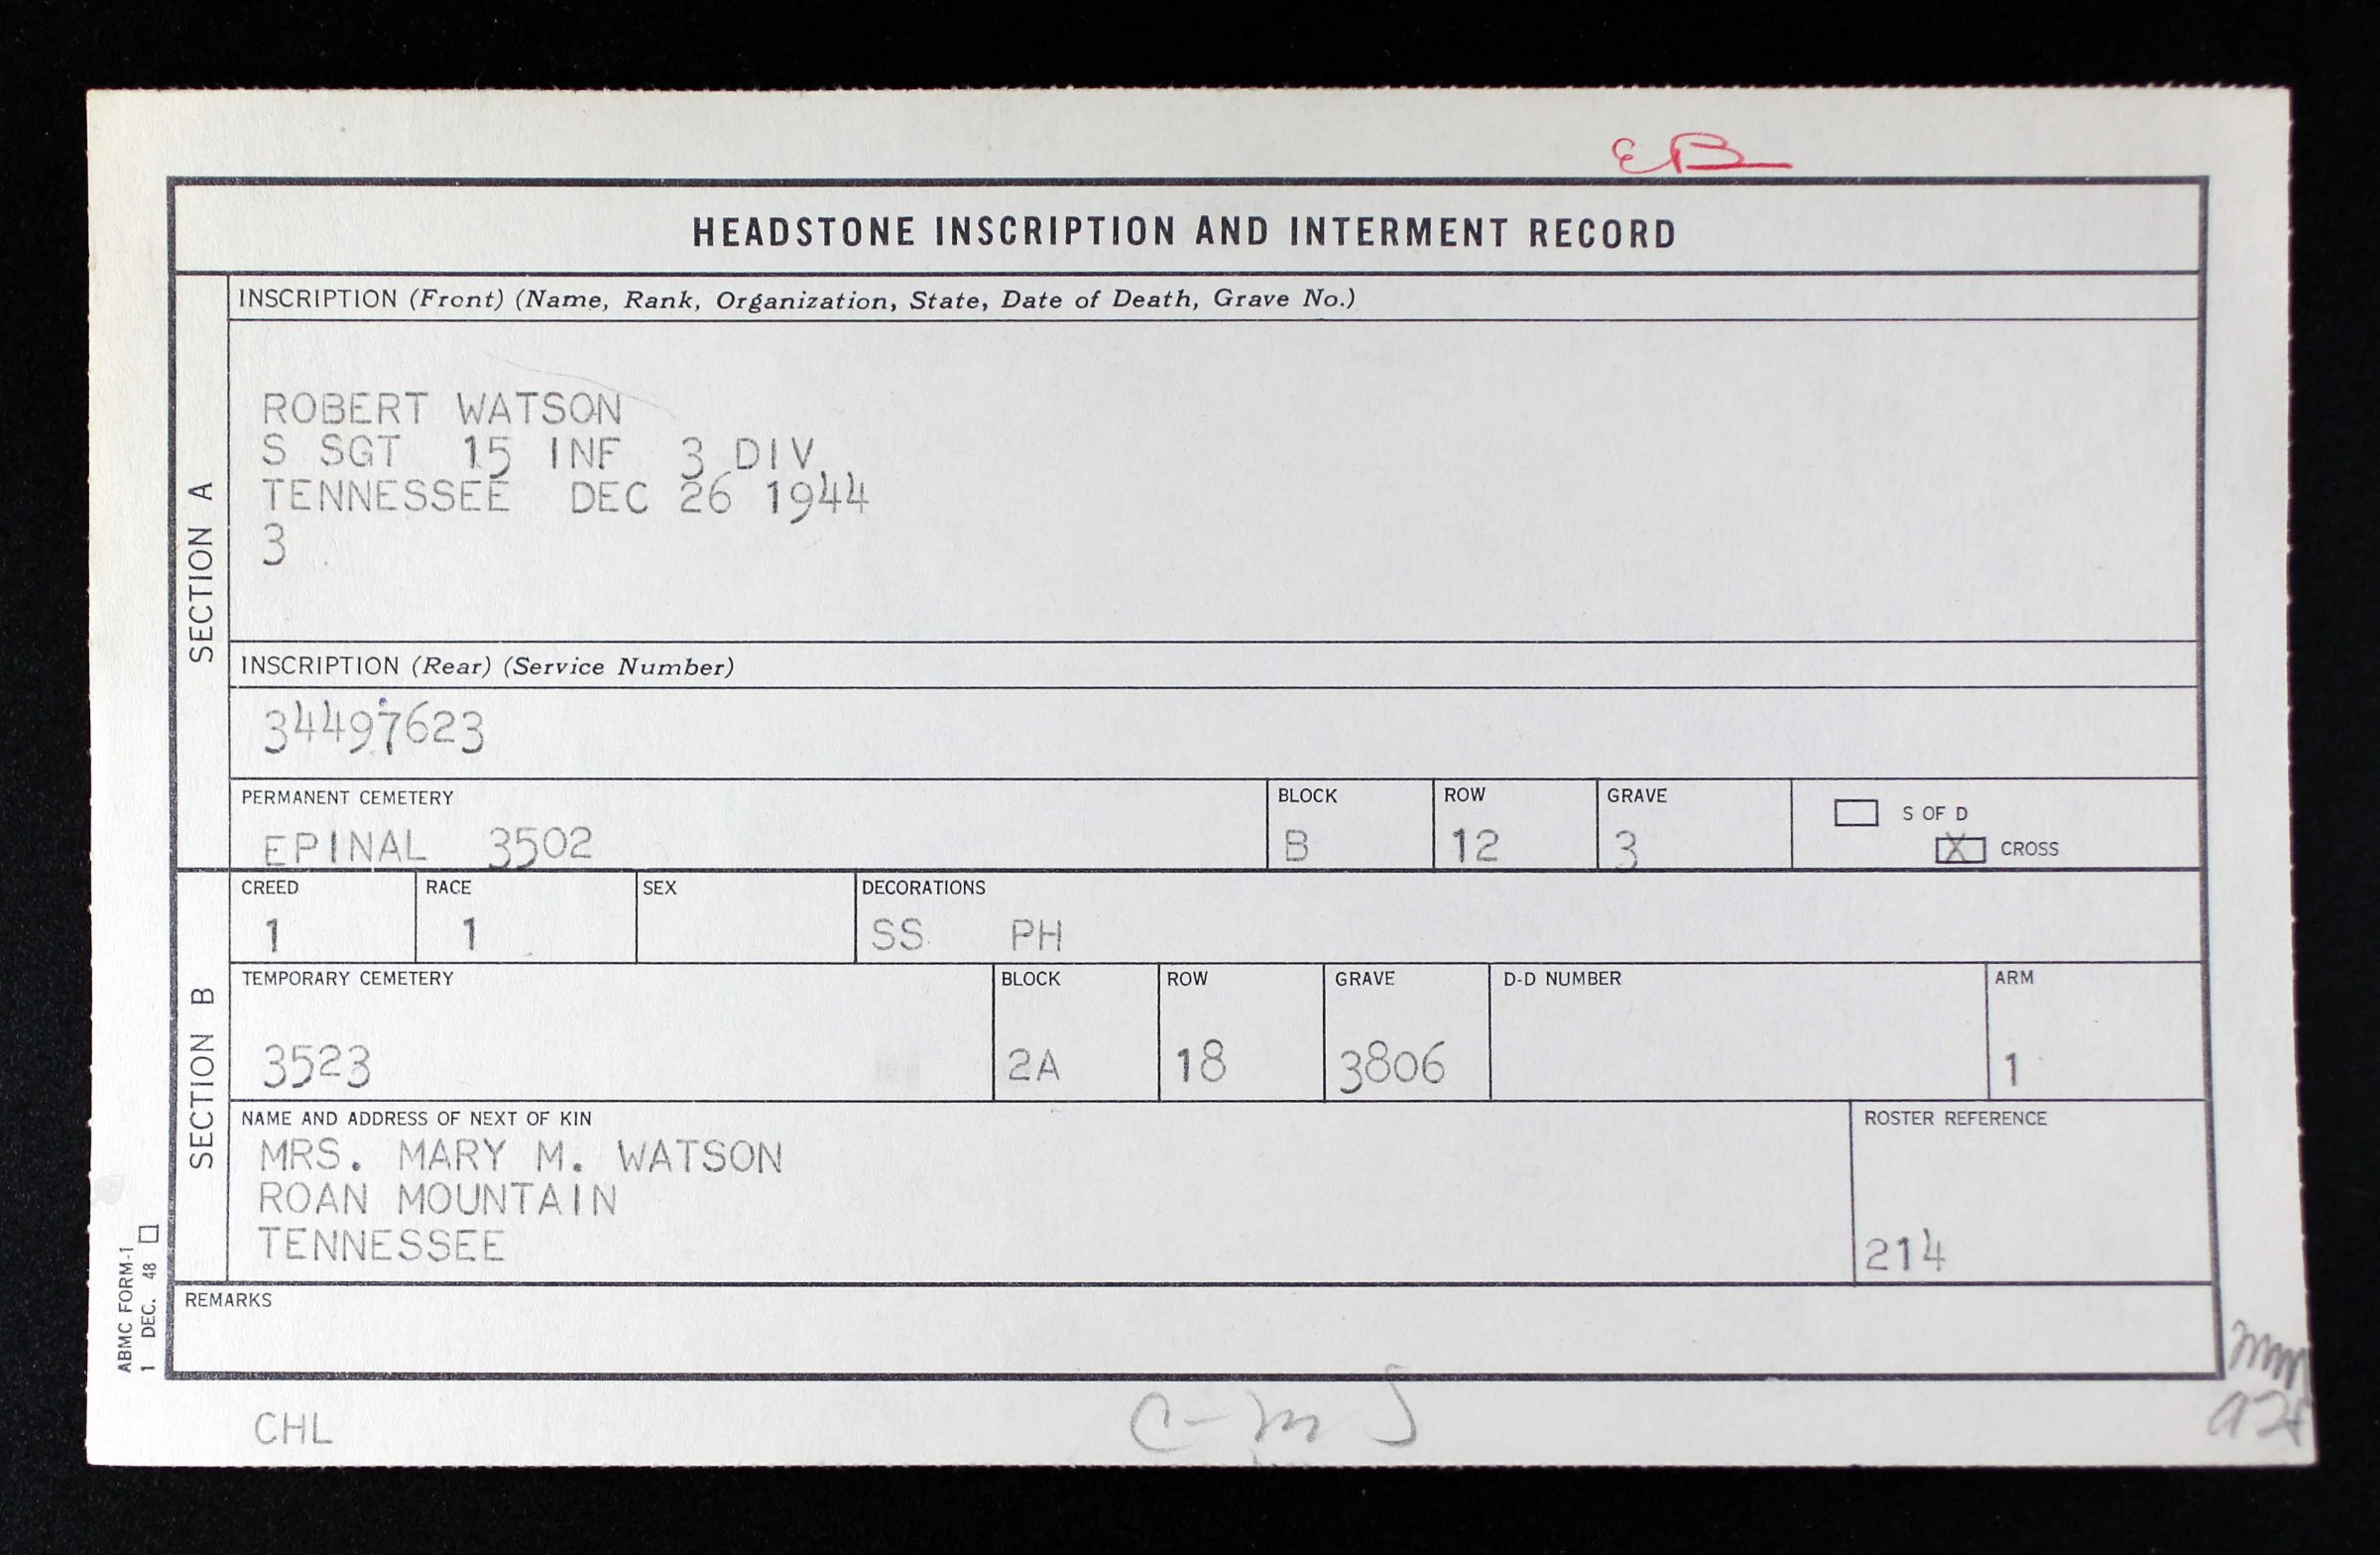 EB
HEADSTONE INSCRIPTION AND INTERMENT RECORD
SECTION A
INSCRIPTION (Front) (Name, Rank, Organization, State, Date of Death, Grave No.)
ROBERT WATSON
S SGT 15 INF 3 DIV
TENNESSEE DEC 26 1944
3
INSCRIPTION (Rear) (Service Number)
34497623
PERMANENT CEMETERY BLOCK ROW GRAVE
EPINAL 3502 B 12 3
S OF D
X CROSS
SECTION B
CREED RACE SEX DECORATIONS
1 1 SS PH
TEMPORARY CEMETERY BLOCK ROW GRAVE D-D NUMBER ARM
3523 2A 18 3806 1
NAME AND ADDRESS OF NEXT OF KIN ROSTER REFERENCE
MRS. MARY M. WATSON
ROAN MOUNTAIN
TENNESSEE
214
REMARKS
ABMC FORM-1
1 DEC. 48
CHL